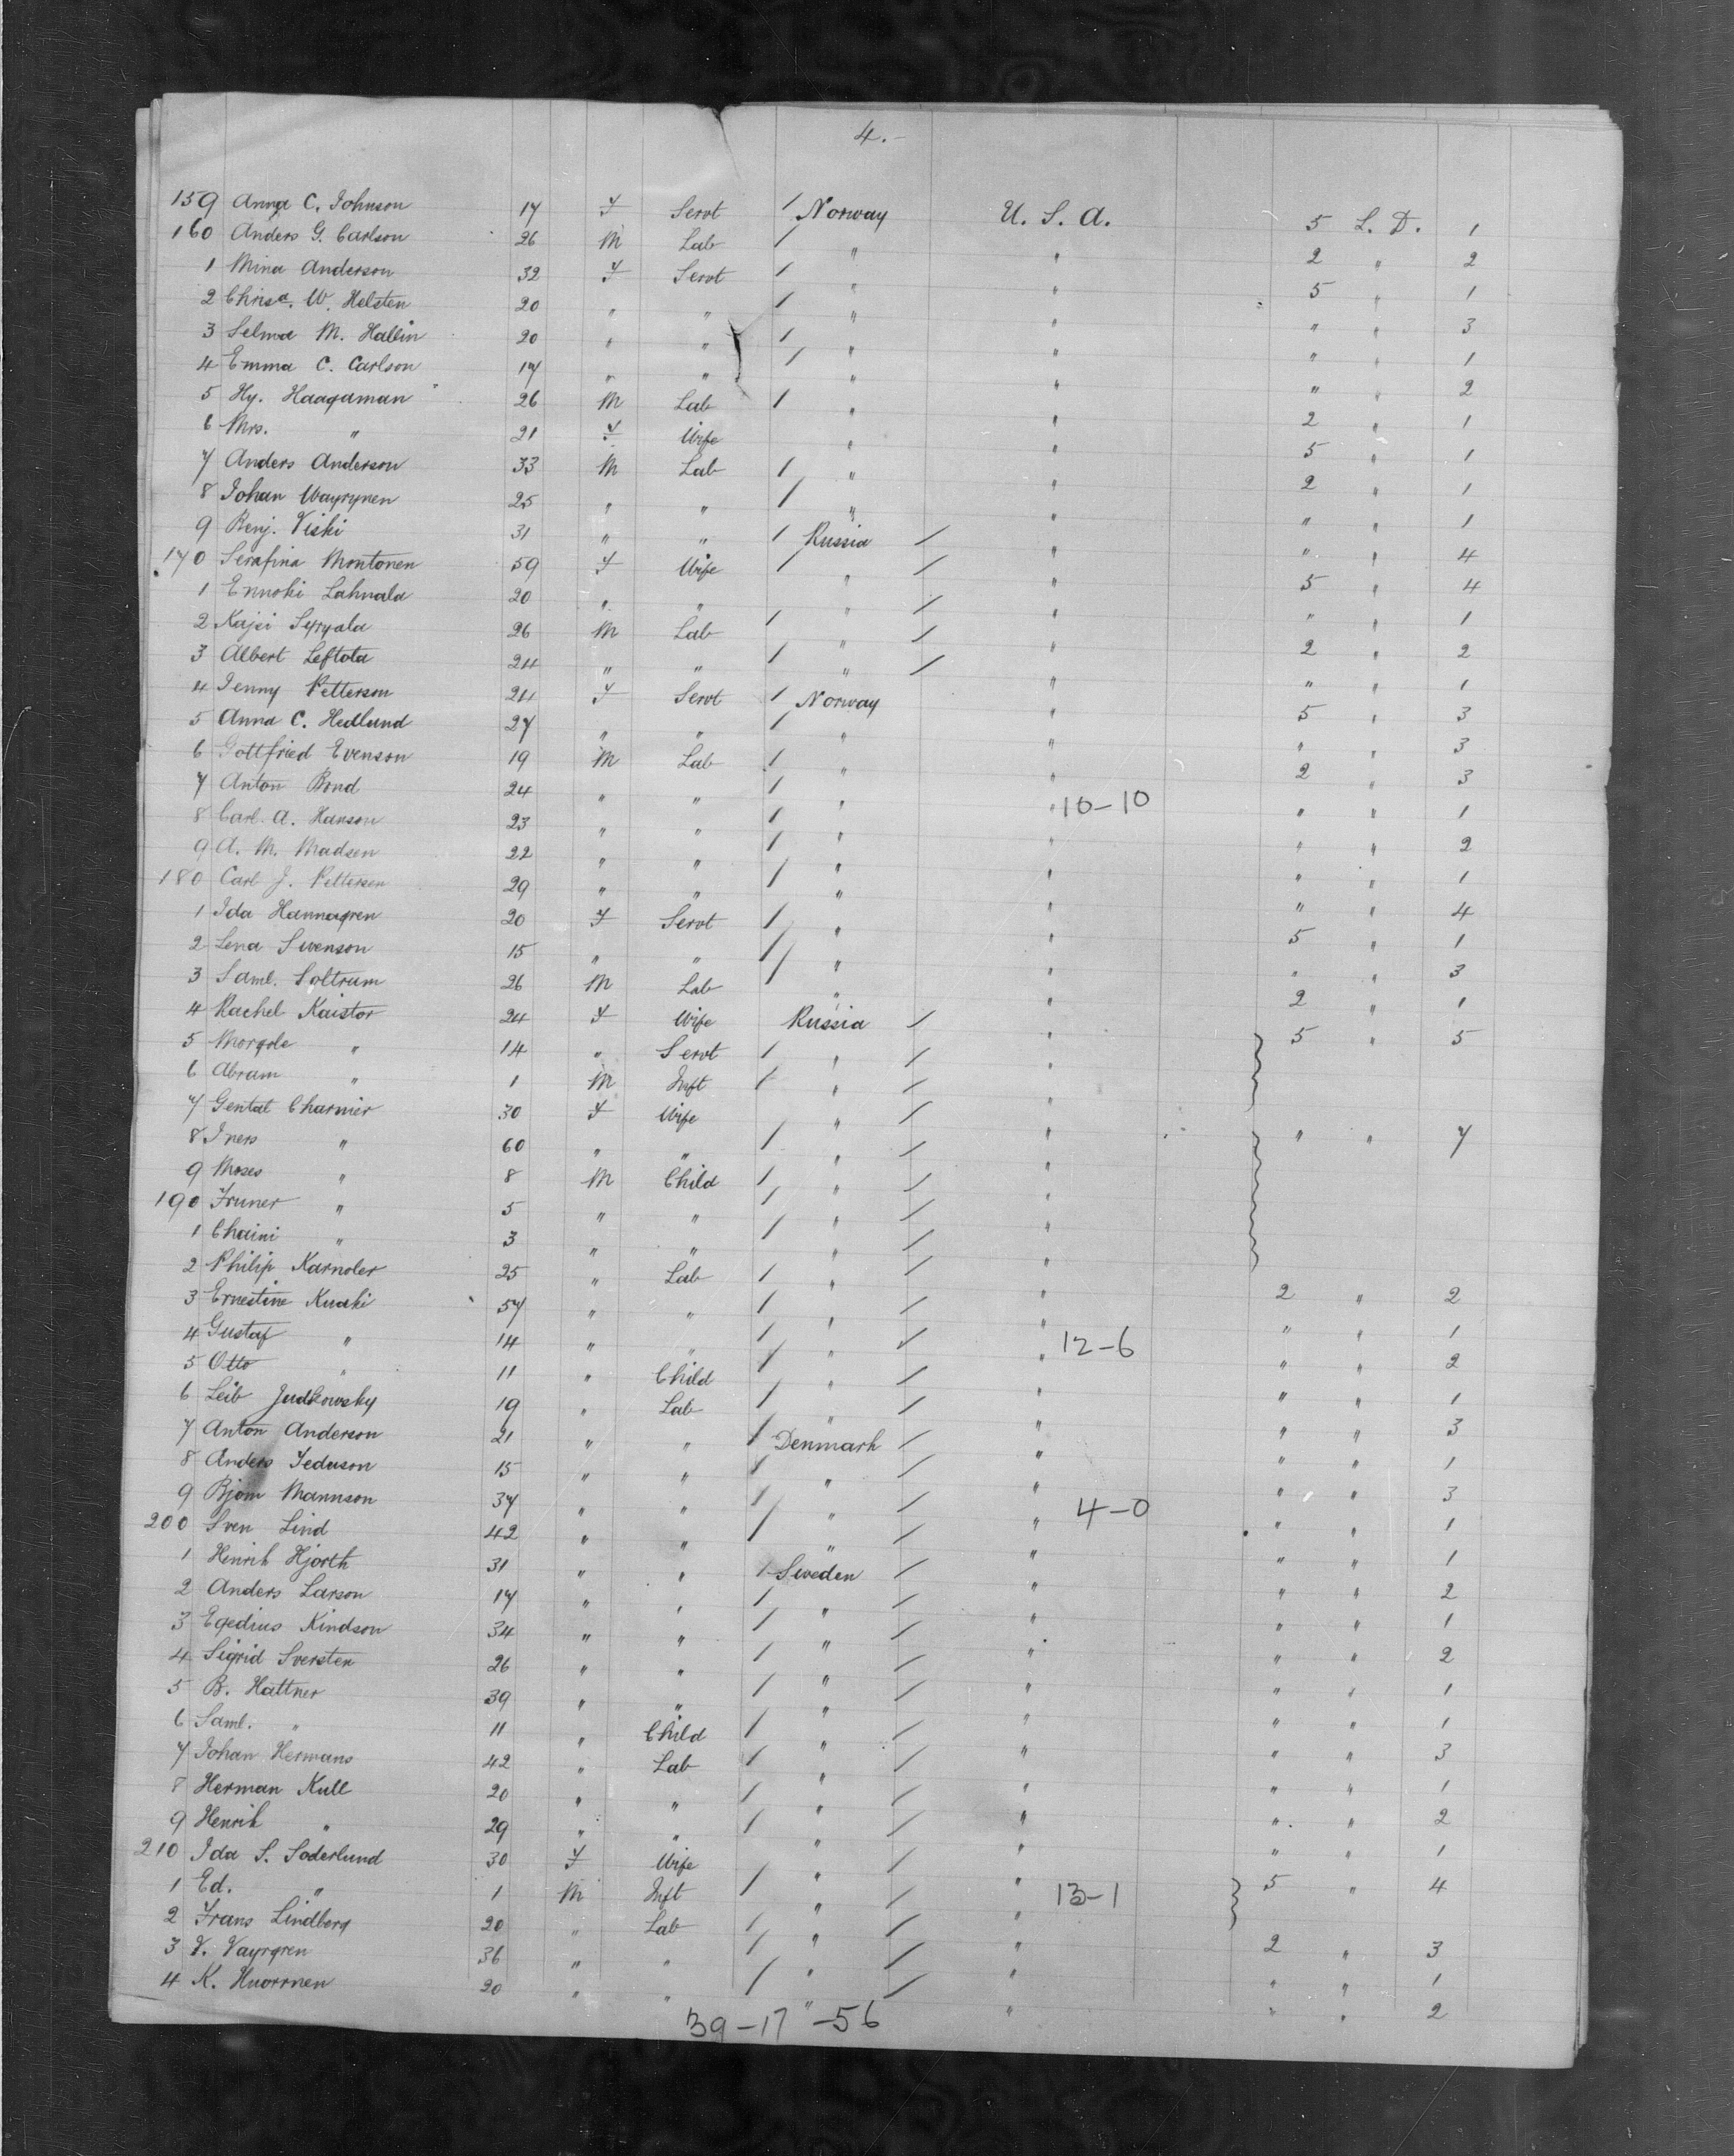 4.-
159 Anna C. Johnson 17 F Servt / Norway U. S. A. 5 L. D. 1
160 Anders G. Carlson 26 M Lab / " " 2 " 2
1 Mina Anderson 32 F Servt / " " 5 " 1
2 Chrisa. W. Helsten 20 " " / " " " " 3
3 Selma M. Hallin 20 " " / " " " " 1
4 Emma C. Carlson 17 " " / " " " " 2
5 Hy. Haagaman 26 M Lab / " " 2 " 1
6 Mrs. " 21 F Wife " " 5 " 1
7 Anders Anderson 33 M Lab / " " 2 " 1
8 Johan Wayrynen 25 " " / " " " " 1
9 Benj. Viski 31 " " / Russia / " " " 4
170 Serafina Montonen 59 F Wife / " / " 5 " 4
1 Ennoki Lahnala 20 " " " / " " " 1
2 Kajsi Syryala 26 M Lab / " / " 2 " 2
3 Albert Leftola 24 " " / " / " " " 1
4 Jenny Petterson 24 F Servt / Norway " 5 " 3
5 Anna C. Hedlund 27 " " / " " " " 3
6 Gottfried Evenson 19 M Lab / " " 2 " 3
7 Anton Bond 24 " " / " " 10-10 " " 1
8 Carl A. Hanson 23 " " / " " " " 2
9 A. M. Madsen 22 " " / " " " " 1
180 Carl J. Pettersen 29 " " / " " " " 4
1 Ida Hannagren 20 F Servt / " " 5 " 1
2 Lena Swenson 15 " " / " " " " 3
3 Saml. Soltrum 26 M Lab / " " 2 " 1
4 Rachel Kaistor 24 F Wife Russia / " 5 " 5
5 Morgole " 14 " Servt / " / "
6 Abram " 1 M Inft / " / "
7 Gental Charnier 30 F Wife " / " " " 7
8 Iners " 60 " " / " / "
9 Moses " 8 M Child / " / "
190 Fruner " 5 " " / " / "
1 Chaini " 3 " " / " / "
2 Philip Karnoler 25 " Lab / " / " 2 " 2
3 Ernestine Kuaki 57 " " / " / " " " 1
4 Gustaf " 14 " " / " / " 12-6 " " 2
5 Otto " 11 " Child / " / " " " 1
6 Leib Judkowsky 19 " Lab / " / " " " 3
7 Anton Anderson 21 " " / Denmark / " " " 1
8 Anders Jeduson 15 " " / " / " " " 3
9 Bjorn Mannson 37 " " / " / " 4-0 " " 1
200 Sven Lind 42 " " / " / " " " 1
1 Henrik Hjorth 31 " " / Sweden / " " " 2
2 Anders Larson 17 " " / " / " " " 1
3 Egedius Kindson 34 " " / " / " " " 2
4 Sigrid Sversten 26 " " / " / " " " 1
5 B. Hattner 39 " " / " / " " " 1
6 Saml. " 11 " Child / " / " " " 3
7 Johan Hermans 42 " Lab / " / " " " 1
8 Herman Kull 20 " " / " / " " " 2
9 Henrik " 29 " " / " / " " " 1
210 Ida S. Soderlund 30 F Wife / " / " 5 " 4
1 Ed. " 1 M Inft / " / " 13-1
2 Frans Lindberg 20 " Lab / " / " 2 " 3
3 V. Vayrgren 36 " " / " / " " " 1
4 K. Huornen 20 " " / " / " " " 2
39-17-56